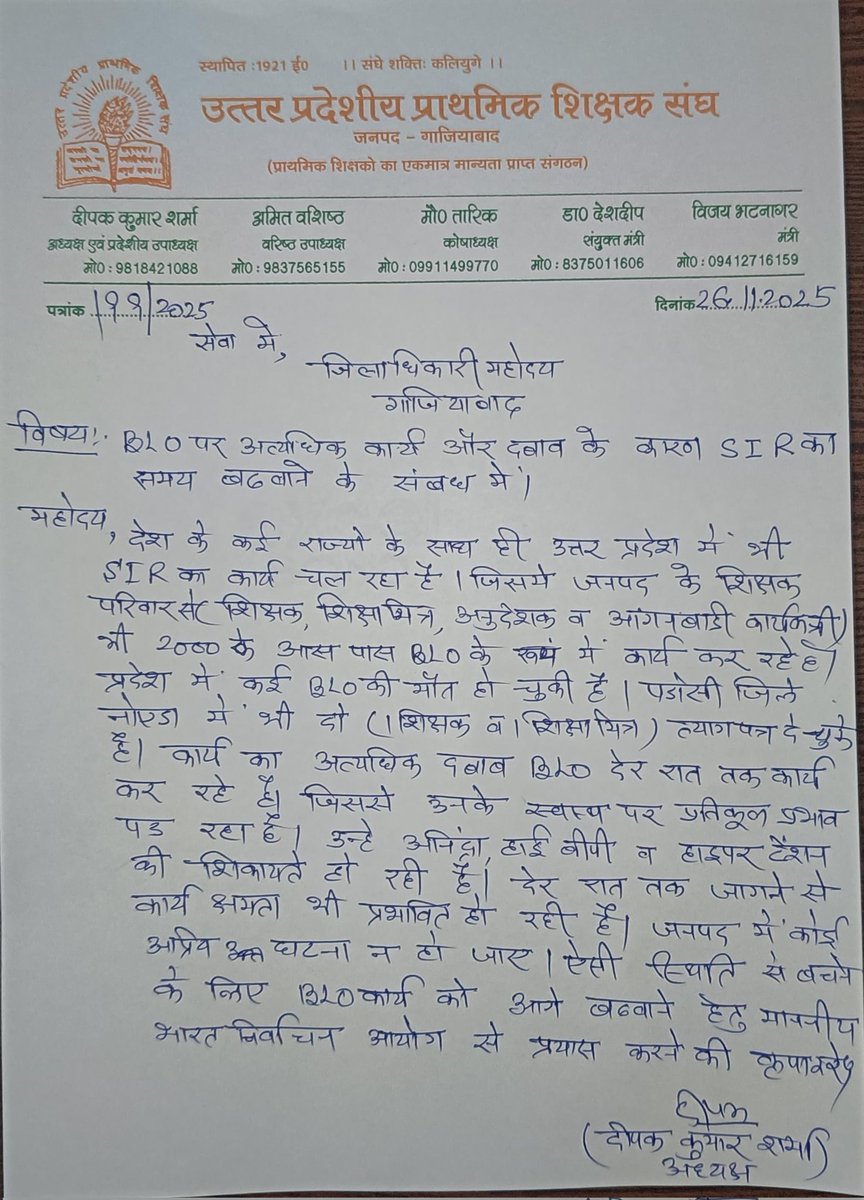 स्थापित :1921 ई0 ।। संघे शक्तिः कलियुगे ।।
उत्तर प्रदेशीय प्राथमिक शिक्षक संघ
उत्तर प्रदेशीय प्राथमिक शिक्षक संघ
जनपद - गाजियाबाद
(प्राथमिक शिक्षको का एकमात्र मान्यता प्राप्त संगठन)
दीपक कुमार शर्मा अमित वशिष्ठ मौ0 तारिक डा0 देशदीप विजय भटनागर
अध्यक्ष एवं प्रदेशीय उपाध्यक्ष वरिष्ठ उपाध्यक्ष कोषाध्यक्ष संयुक्त मंत्री मंत्री
मो0 : 9818421088 मो0 : 9837565155 मो0 : 09911499770 मो0 : 8375011606 मो0 : 09412716159
पत्रांक 199/2025 दिनांक 26.11.2025
सेवा मे,
जिलाधिकारी महोदय
गाजियाबाद
विषय:- BLO पर अत्यधिक कार्य और दबाव के कारण SIR का
समय बढवाने के संबध मे।
महोदय,
देश के कई राज्यो के साथ ही उत्तर प्रदेश मे भी
SIR का कार्य चल रहा है। जिसमे जनपद के शिक्षक
परिवार से (शिक्षक, शिक्षामित्र, अनुदेशक व आंगनबाडी कार्यकत्री)
भी 2000 के आस पास BLO के रूप में कार्य कर रहे है।
प्रदेश मे कई BLO की मौत हो चुकी है। पडोसी जिले
नोएडा मे भी दो (1 शिक्षक व 1 शिक्षामित्र) त्यागपत्र दे चुके
है। कार्य का अत्यधिक दबाब BLO देर रात तक कार्य
कर रहे है। जिससे उनके स्वास्थ पर प्रतिकूल प्रभाव
पड रहा है। उन्हे अनिंद्रा, हाई बीपी व हाइपर टेंशन
की शिकायते हो रही है। देर रात तक जागने से
कार्य क्षमता भी प्रभावित हो रही है। जनपद मे कोई
अप्रिय घटना न हो जाए। ऐसी स्थिति से बचने
के लिए BLO कार्य को आगे बढवाने हेतु माननीय
भारत निर्वाचन आयोग से प्रयास करने की कृपा करे।
दीपक
(दीपक कुमार शर्मा)
अध्यक्ष